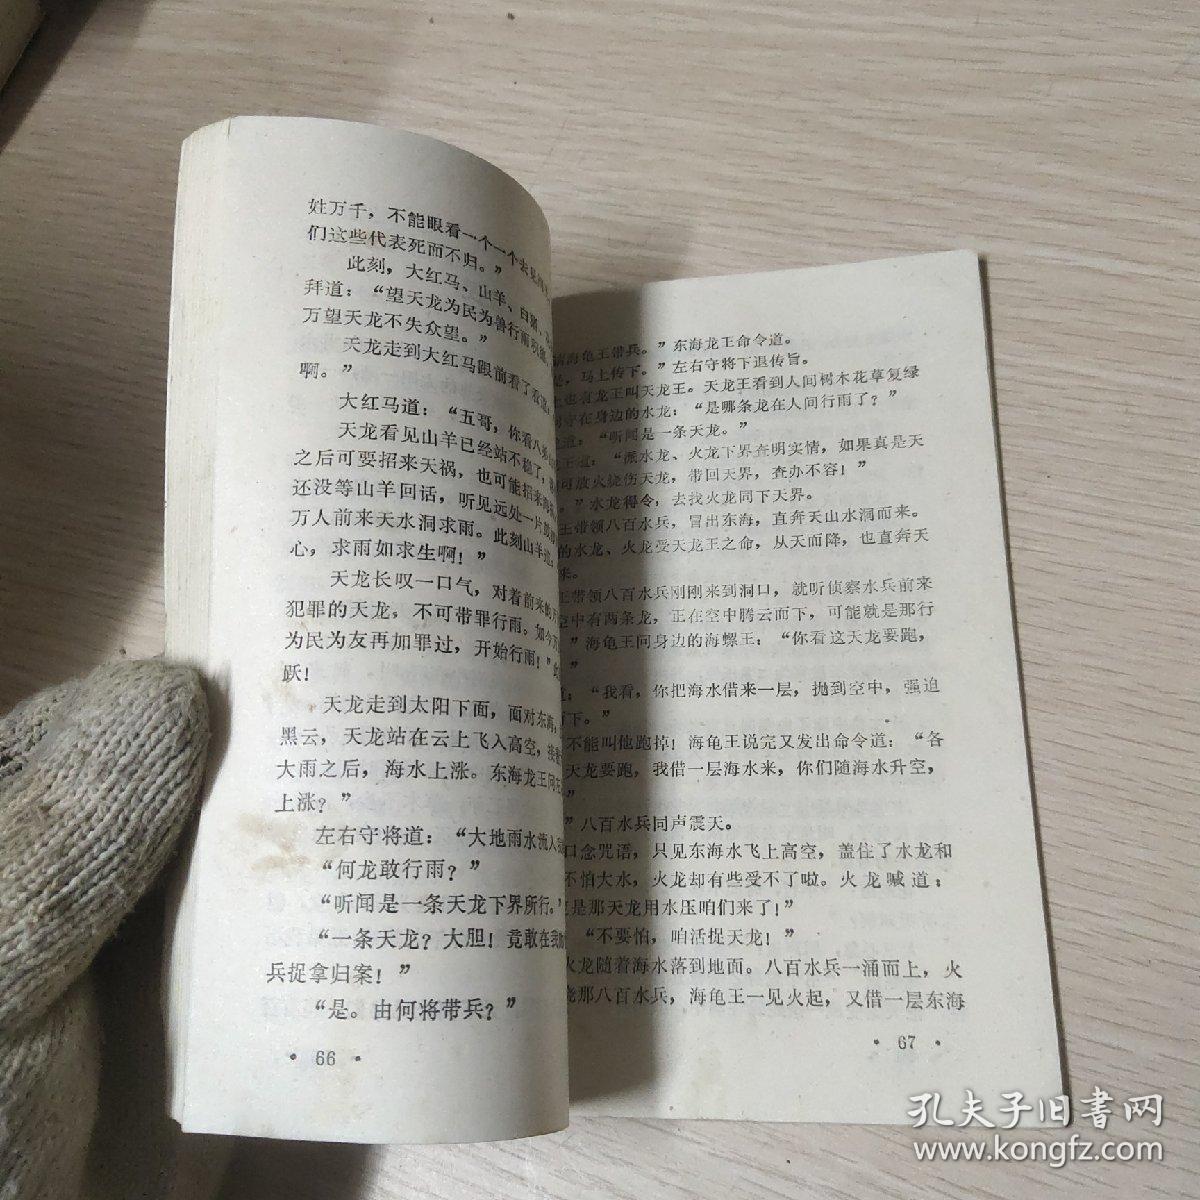 姓万千，不能眼看一个一个去见
们这些代表死而不归。”
此刻，大红马、山羊、白猪、
拜道：“望天龙为民为兽行雨积德，
万望天龙不失众望。”
天龙走到大红马跟前看了看道：
啊。”
大红马道：“五哥，你看八弟山
天龙看见山羊已经站不稳了，
之后可要招来天祸，也可能招来海
还没等山羊回话，听见远处一片
万人前来天水洞求雨。此刻山羊道：
心，求雨如求生啊！”
天龙长叹一口气，对着前来的
犯罪的天龙，不可带罪行雨。如今万
为民为友再加罪过，开始行雨！”
跃！
天龙走到太阳下面，面对东海，
黑云，天龙站在云上飞入高空，接着
大雨之后，海水上涨。东海龙王问左
上涨？”
左右守将道：“大地雨水流入
“何龙敢行雨？”
“听闻是一条天龙下界所行。”
“一条天龙？大胆！竟敢在我
兵捉拿归案！”
“是。由何将带兵？”
• 66 •
请海龟王带兵。”东海龙王命令道。
是，马上传下。”左右守将下退传旨。
上也有龙王叫天龙王。天龙王看到人间树木花草复绿
守在身边的水龙：“是哪条龙在人间行雨了？”
道：“听闻是一条天龙。”
王道：“派水龙、火龙下界查明实情，如果真是天
可放火烧伤天龙，带回天界，查办不容！”
。”水龙得令，去找火龙同下天界。
王带领八百水兵，冒出东海，直奔天山水洞而来。
的水龙、火龙受天龙王之命，从天而降，也直奔天
来。
王带领八百水兵刚刚来到洞口，就听侦察水兵前来
空中有两条龙，正在空中腾云而下，可能就是那行
”海龟王问身边的海螺王：“你看这天龙要跑，
”
道：“我看，你把海水借来一层，抛到空中，强迫
下。”
不能叫他跑掉！海龟王说完又发出命令道：“各
天龙要跑，我借一层海水来，你们随海水升空，
”
”八百水兵同声震天。
口念咒语，只见东海水飞上高空，盖住了水龙和
不怕大水，火龙却有些受不了啦。火龙喊道：
是那天龙用水压咱们来了！”
“不要怕，咱活捉天龙！”
火龙随着海水落到地面。八百水兵一涌而上，火
烧那八百水兵，海龟王一见火起，又借一层东海
• 67 •
孔夫子旧书网
www.kongfz.com